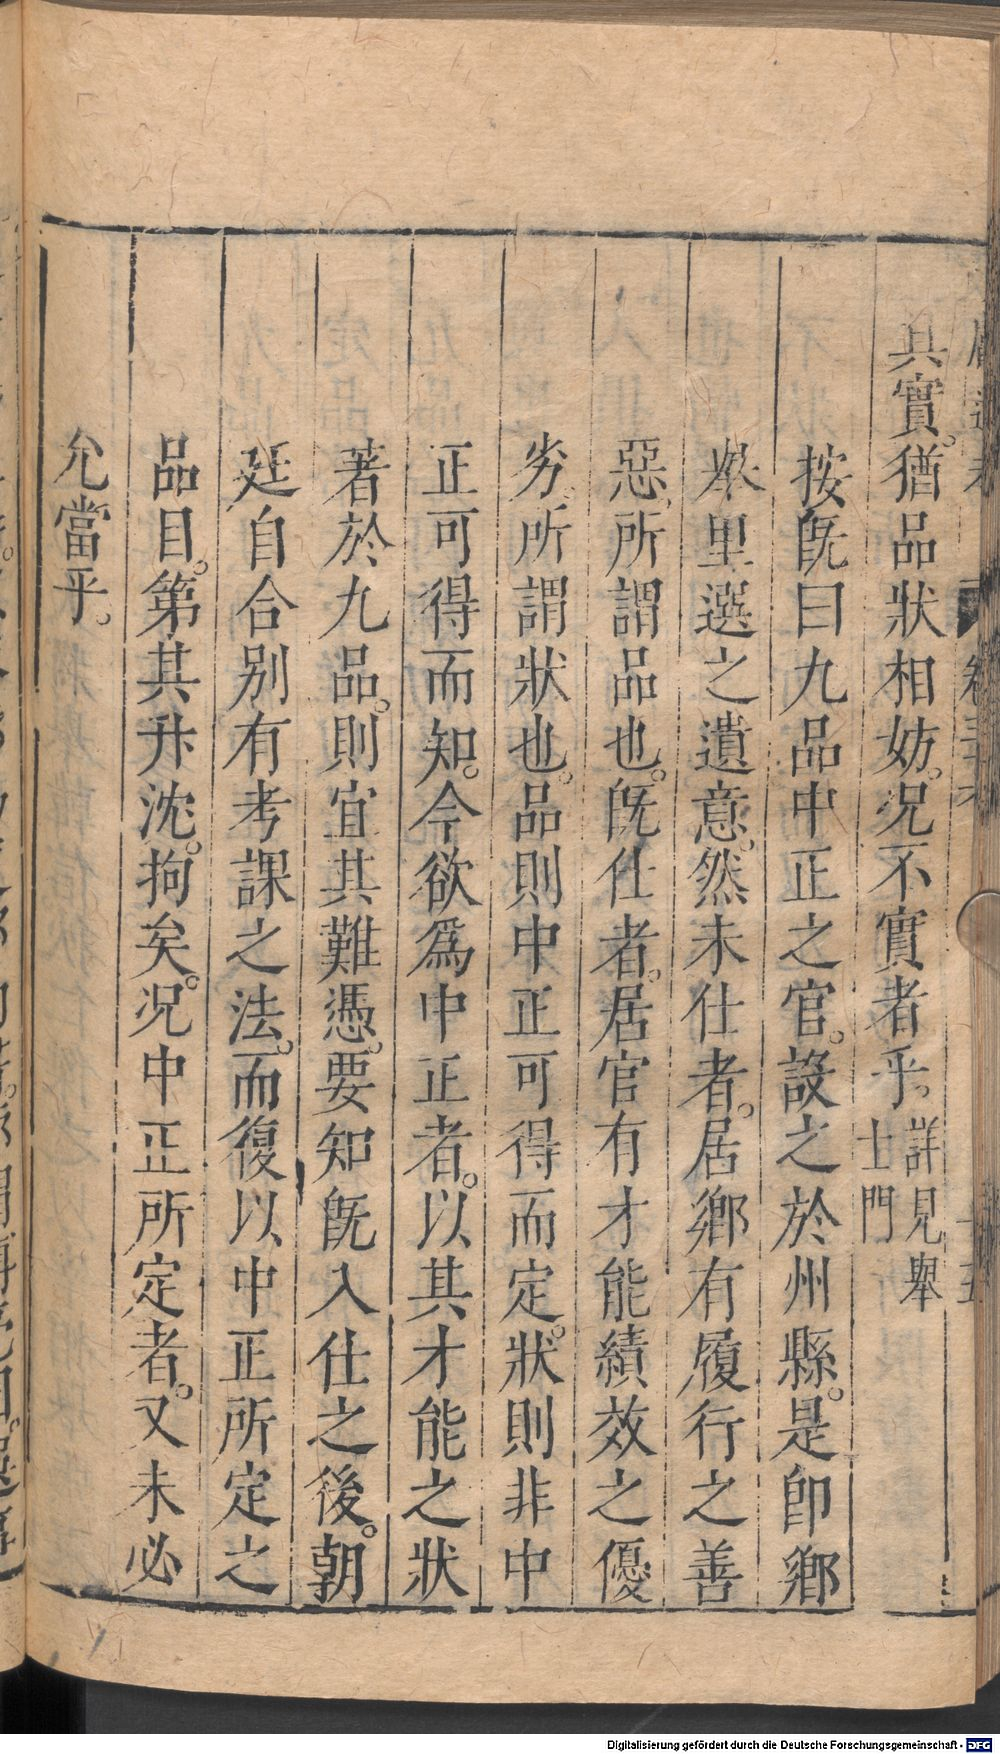 其實。猶品狀相妨。况不實者乎。詳見舉士門
按旣曰九品中正之官。設之於州縣。是卽鄉
舉里選之遺意。然未仕者。居鄉有履行之善
惡。所謂品也。旣仕者。居官有才能績效之優
劣。所謂狀也。品則中正可得而定。狀則非中
正可得而知。今欲爲中正者。以其才能之狀
著於九品。則宜其難憑。要知旣入仕之後。朝
廷自合别有考課之法。而復以中正所定之
品目。第其升沈。拘矣。况中正所定者。又未必
允當乎。
Digitalisierung gefördert durch die Deutsche Forschungsgemeinschaft - DFG